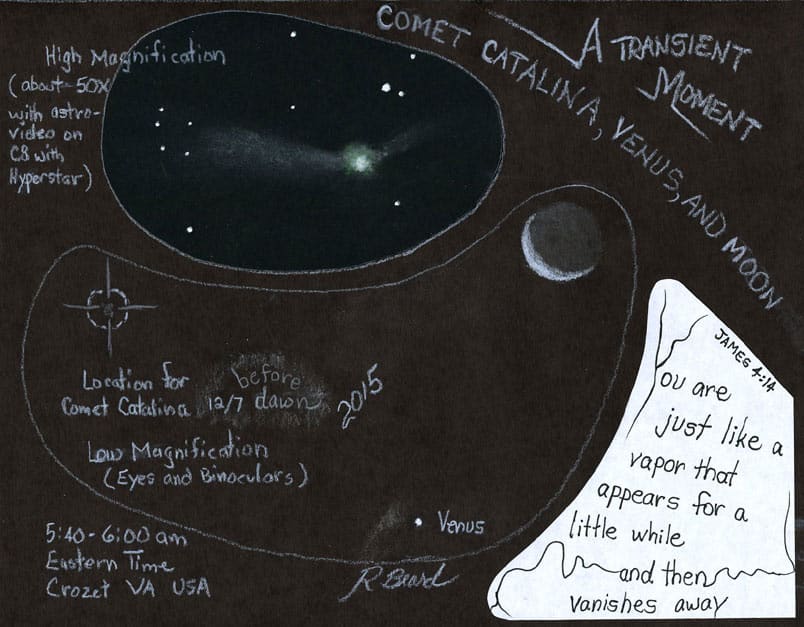 COMET CATALINA, VENUS, AND MOON
A TRANSIENT
MOMENT
High Magnification
(about 50X
with astro-
video on
C8 with
Hyperstar)
Location for
Comet Catalina
before
12/7 dawn
2015
Low Magnification
(Eyes and Binoculars)
Venus
5:40-6:00 am
Eastern Time
Crozet VA USA
R Beard
JAMES 4:14
You are
just like a
vapor that
appears for a
little while
and then
vanishes away